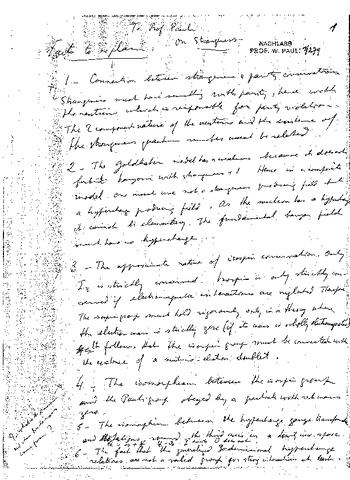 To Prof Pauli 1
On Strangeness
NACHLASS
PROF. W. PAULI
Facts to explain
1 - Connection between strangeness & parity conservation
Strangeness must have something to do with parity, hence with
the neutrino which is responsible for parity violation.
The 2 component nature of the neutrino and the existence of
the strangeness quantum number must be related.
2 - The Goldhaber model has a weakness because it does not
forbid baryons with strangeness +1 Hence in a composite
model one must use not a strangeness producing field but
a hypercharge producing field. As the nucleon has a hypercharge
it cannot be elementary. The fundamental baryon field
must have no hypercharge...
3 - The approximate nature of isospin conservation. Only
I₃ is strictly conserved. Isospin is only strictly con-
served if electromagnetic interactions are neglected
The isospin group must hold rigorously only in a theory where
the electron mass is strictly zero (if its mass is wholly electromagnetic)
It follows that the isospin group must be connected with
the existence of a neutrino-electron doublet.
4 - The isomorphism between the isospin group
and the Pauli group obeyed by a particle with rest mass
zero.
5 - The isomorphism between the hypercharge gauge transform
and rotations around the third axis in a
6 - The fact that the generalized hypercharge
relations are not a valid group for strong interactions at